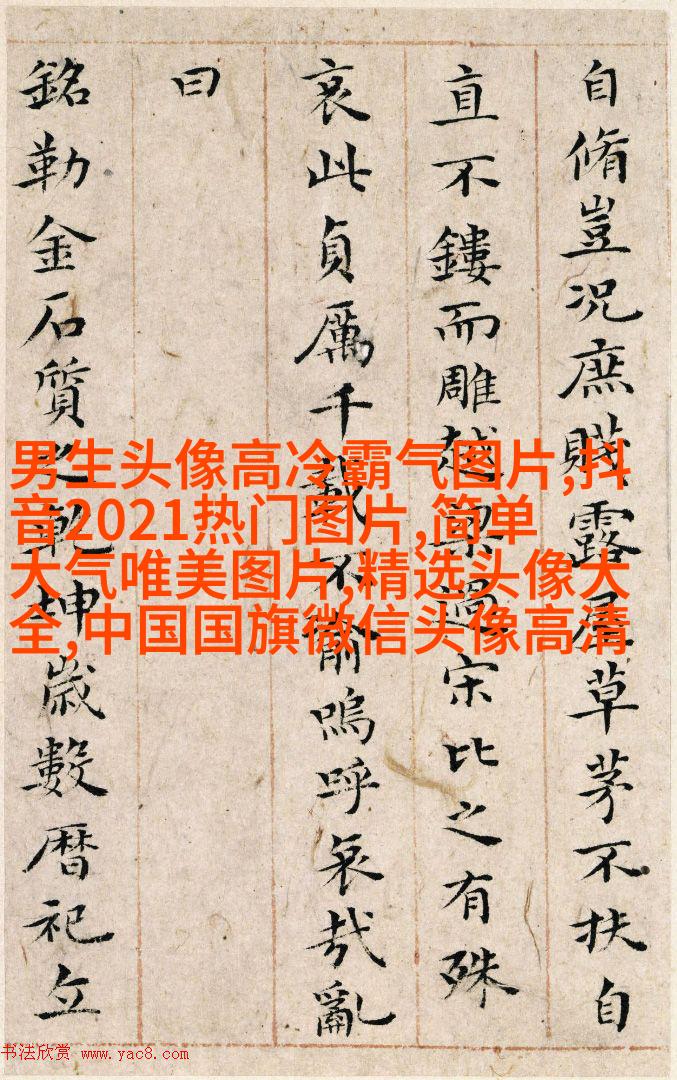 自脩豈況庶賤露草茅不扶自
直不鏤而雕越梁過宋比之有殊
哀此貞厲千載不渝嗚呼哀哉亂
曰
銘勒金石質之乾坤歲數曆祀立
男生头像高冷霸气图片,抖
音2021热门图片,简单
大气唯美图片,精选头像大
全,中国国旗微信头像高清
书法欣赏 www.yac8.com